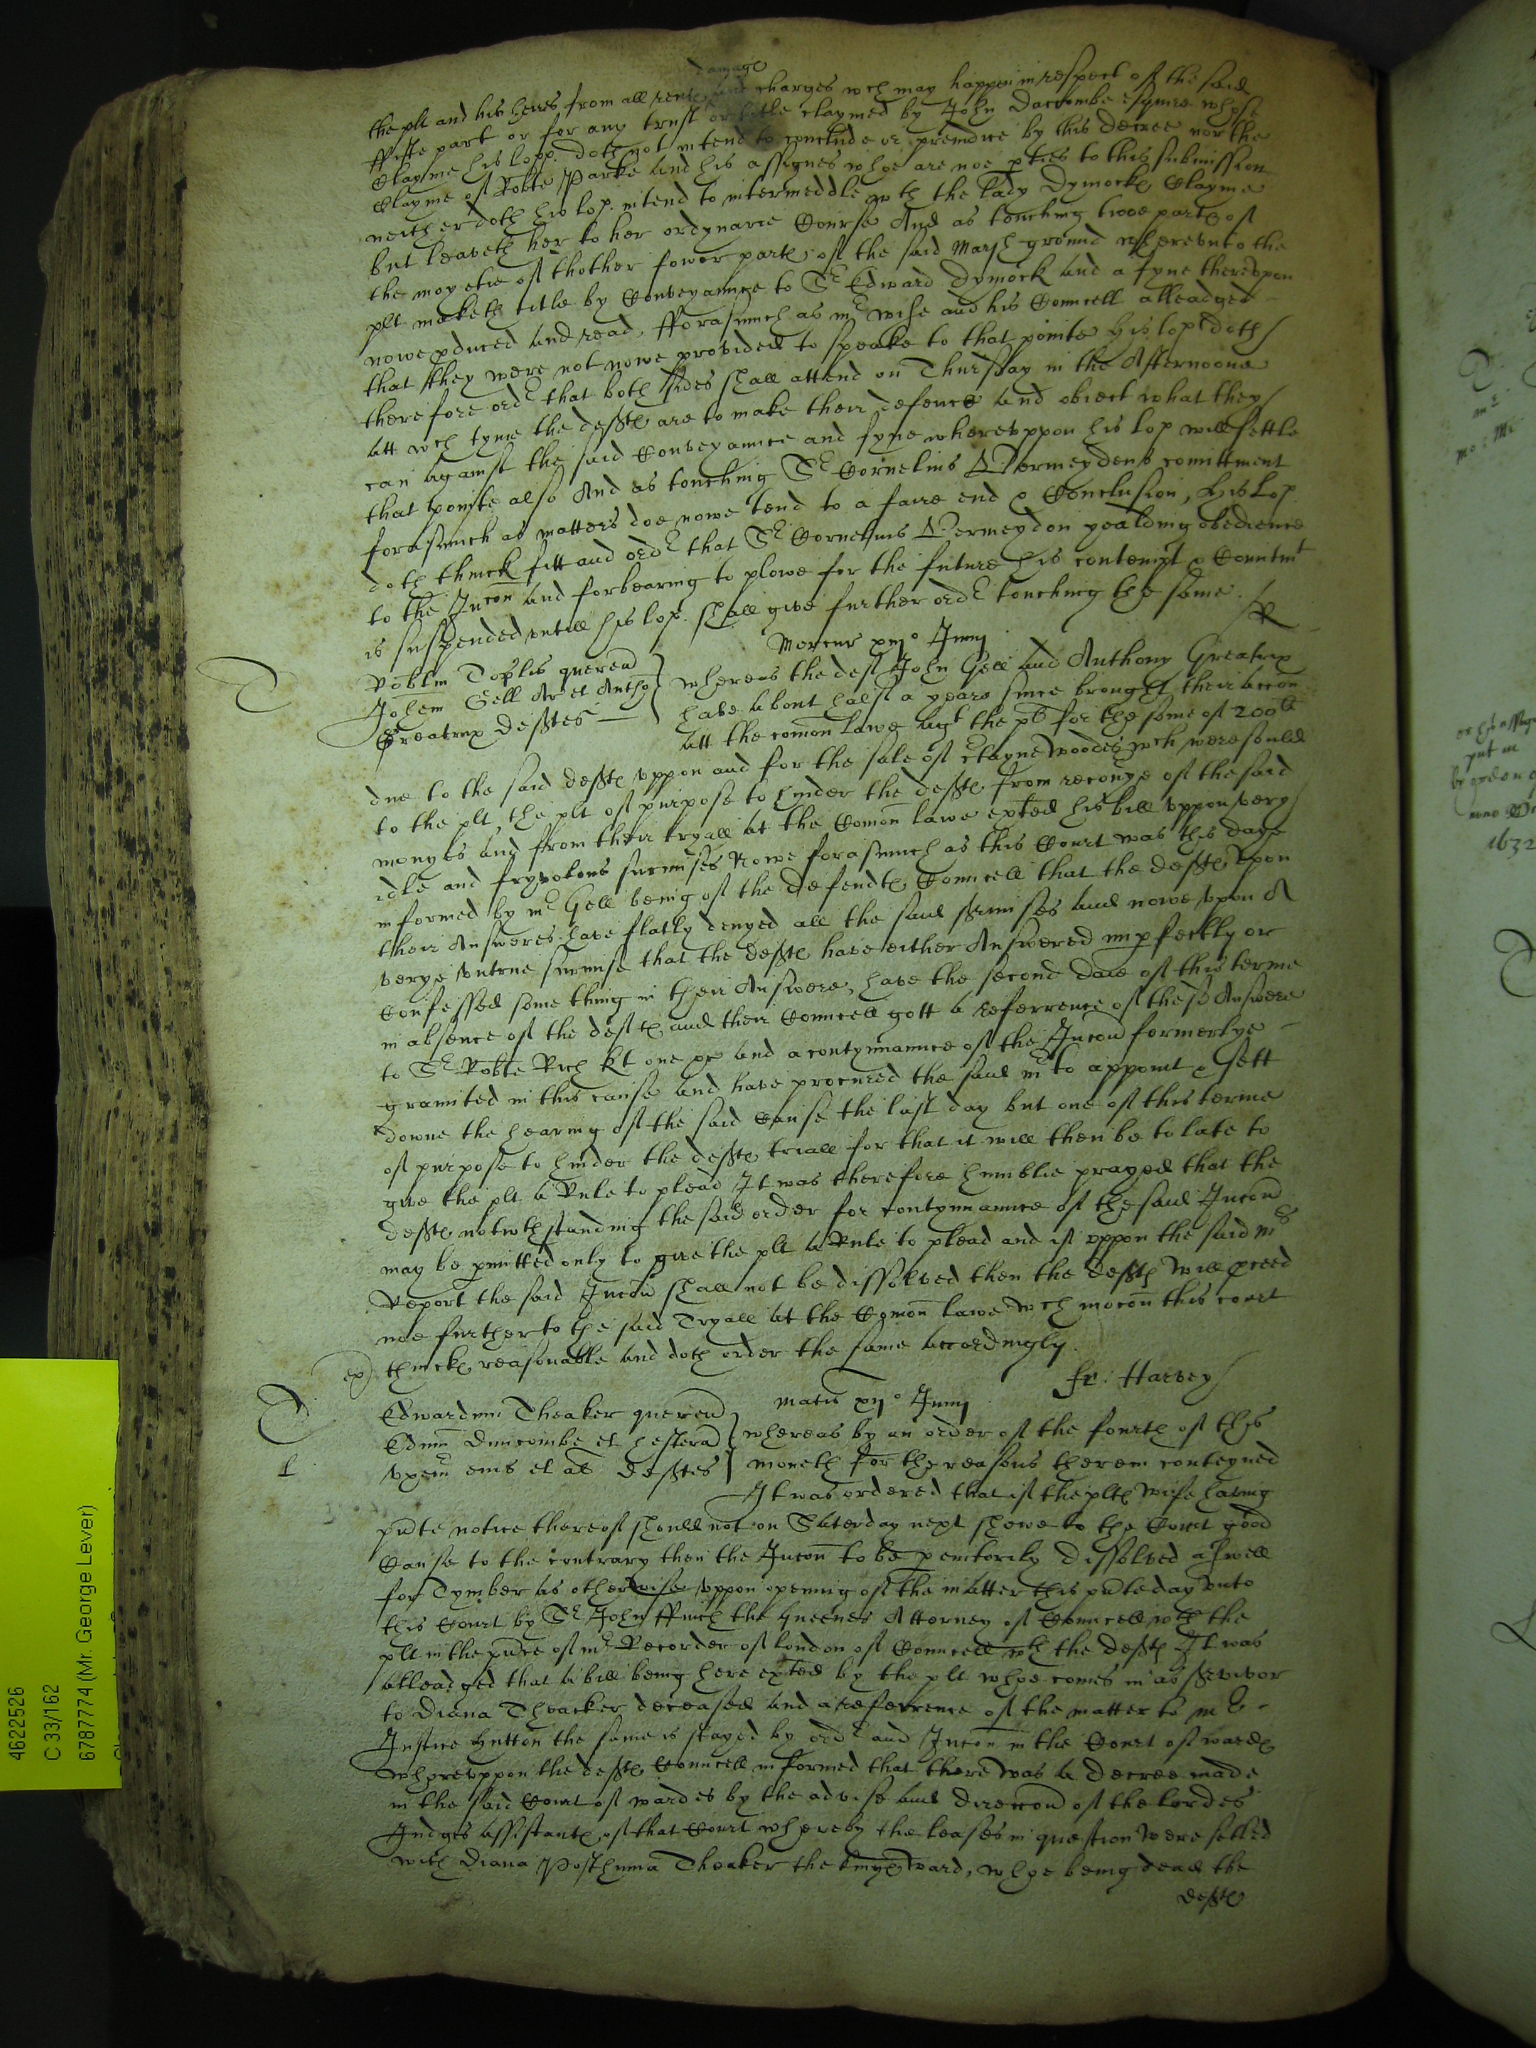 damage
the plt and his heires from all rents and charges wch may happen in respect of the said
ffifte part or for any trust or title claymed by John Daccombe esquire whose
Clayme his lopp. doth not intend to conclude or preiudice by this decree nor the
Clayme of Robte Parke and his assignes whoe are noe pties to this submission
neither doth his lop. intend to intermeddle wth the lady Dymocke Clayme
but leaveth her to her ordynarie Course And as touching twoe parte of
the moyetie of thother fower parte of the said Marsh ground wherevnto the
plt maketh title by Conveyaunce to Sr Edward Dymock and a fyne therevpon
nowe pduced and read, fforasmuch as mr wise and his Councell alleadged
that they were not nowe provided to speake to that pointe his lopp doth
therefore ordr that both sides shall attend on Thursday in the Afternoone
att wch tyme the defte are to make their defence and obiect what they
can against the said Conveyaunce and fyne wherevppon his lop will settle
that pointe also And as touching Sr Cornelius Vermeydens comittment
forasmuch as matters doe nowe tend to a faire end & Conclusion, his lop
doth thinck fitt and ordr that Sr Cornelius Vermeydon yealding obedience
to the Jncon and forbearing to plowe for the future his contempt & Comittmt
is suspended vntill his lop. shall give further ordr touching the same
Mercur xiijo Junij
Robtm Toplis quereñ
Johem Gell Ar et Antho
Greatrax Deftes
whereas the deft John Gell and Anthony Greatrax
have about halfe a yeare since brought their accon
att the comon lawe agt the pt for the some of 200li
due to the said defte vppon and for the sale of certayne woodes wch were sould
to the plt, the plt of purpose to hinder the defte from recouye of the said
monyes and from their tryall at the Comon lawe exhted his bill vppon very
idle and fryvolous surmises Nowe forasmuch as this Court was this daye
informed by mr Gell being of the defendte Councell that the defte vpon
their Answeres have flatly denyed all the said surmises and nowe vpon A
verye vntrue surmise that the defte have either Answered impfectly or
Confessed some thing in their Answere, have the second daie of this terme
in absence of the defte and their Councell gott a referrence of these Answere
to Sr Robte Rich kt one &c and a contynuaunce of the Jncon formerlye
graunted in this cause and have procured the said mr to appoint & sett
downe the hearing of the said Cause the last day but one of this terme
of purpose to hinder the defte triall for that it will then be to late to
give the plt a Rule to plead It was therefore humblie prayed that the
defte notwthstanding the said order for contynuaunce of the said Jncon
may be pmitted only to give the plt a Rule to plead and if vppon the said mrs
Report the said Jncon shall not be dissolved then the defte will pceed
noe further to the said Tryall at the Comon lawe wch mocon this court
thincke reasonable and doth order the same accordingly.
ex)
fr: Harvey
Martis xijo Junij
Edwardum Theaker quereñ
Edm Duncombe et hesteram
vxem eius et al Deftes
whereas by an order of the fourth of this
moneth for the reasons therein conteyned
It was ordered that if the plte wife having
pñte notice thereof should not on Saterday next showe to the Court good
Cause to the contrary then the Jncon to be pemtorily dissolved aswell
for Tymber as otherwise vppon opening of the matter this pñte day vnto
this Court by Sr John ffinch the Queenes Attorney of Councell wth the
plt in the pñce of mr Recorder of london of Councell wth the defte It was
alleadged that a bill being here exhted by the plt whoe comes in as survivor
to Diana Theacker deceased and a referrence of the matter to mr
Justice hutton the same is stayed by ordr and Jncon in the Court of warde
wherevppon the defte Councell informed that there was a decree made
in the said Court of wardes by the advise and direccon of the lordes
Judges assistante of that Court whereby the leases in question were setled
with Diana Posthuma Theaker the kinge ward, whoe being dead the
defte
4622526
C 33/162
6787774 (Mr. George Lever)
1632